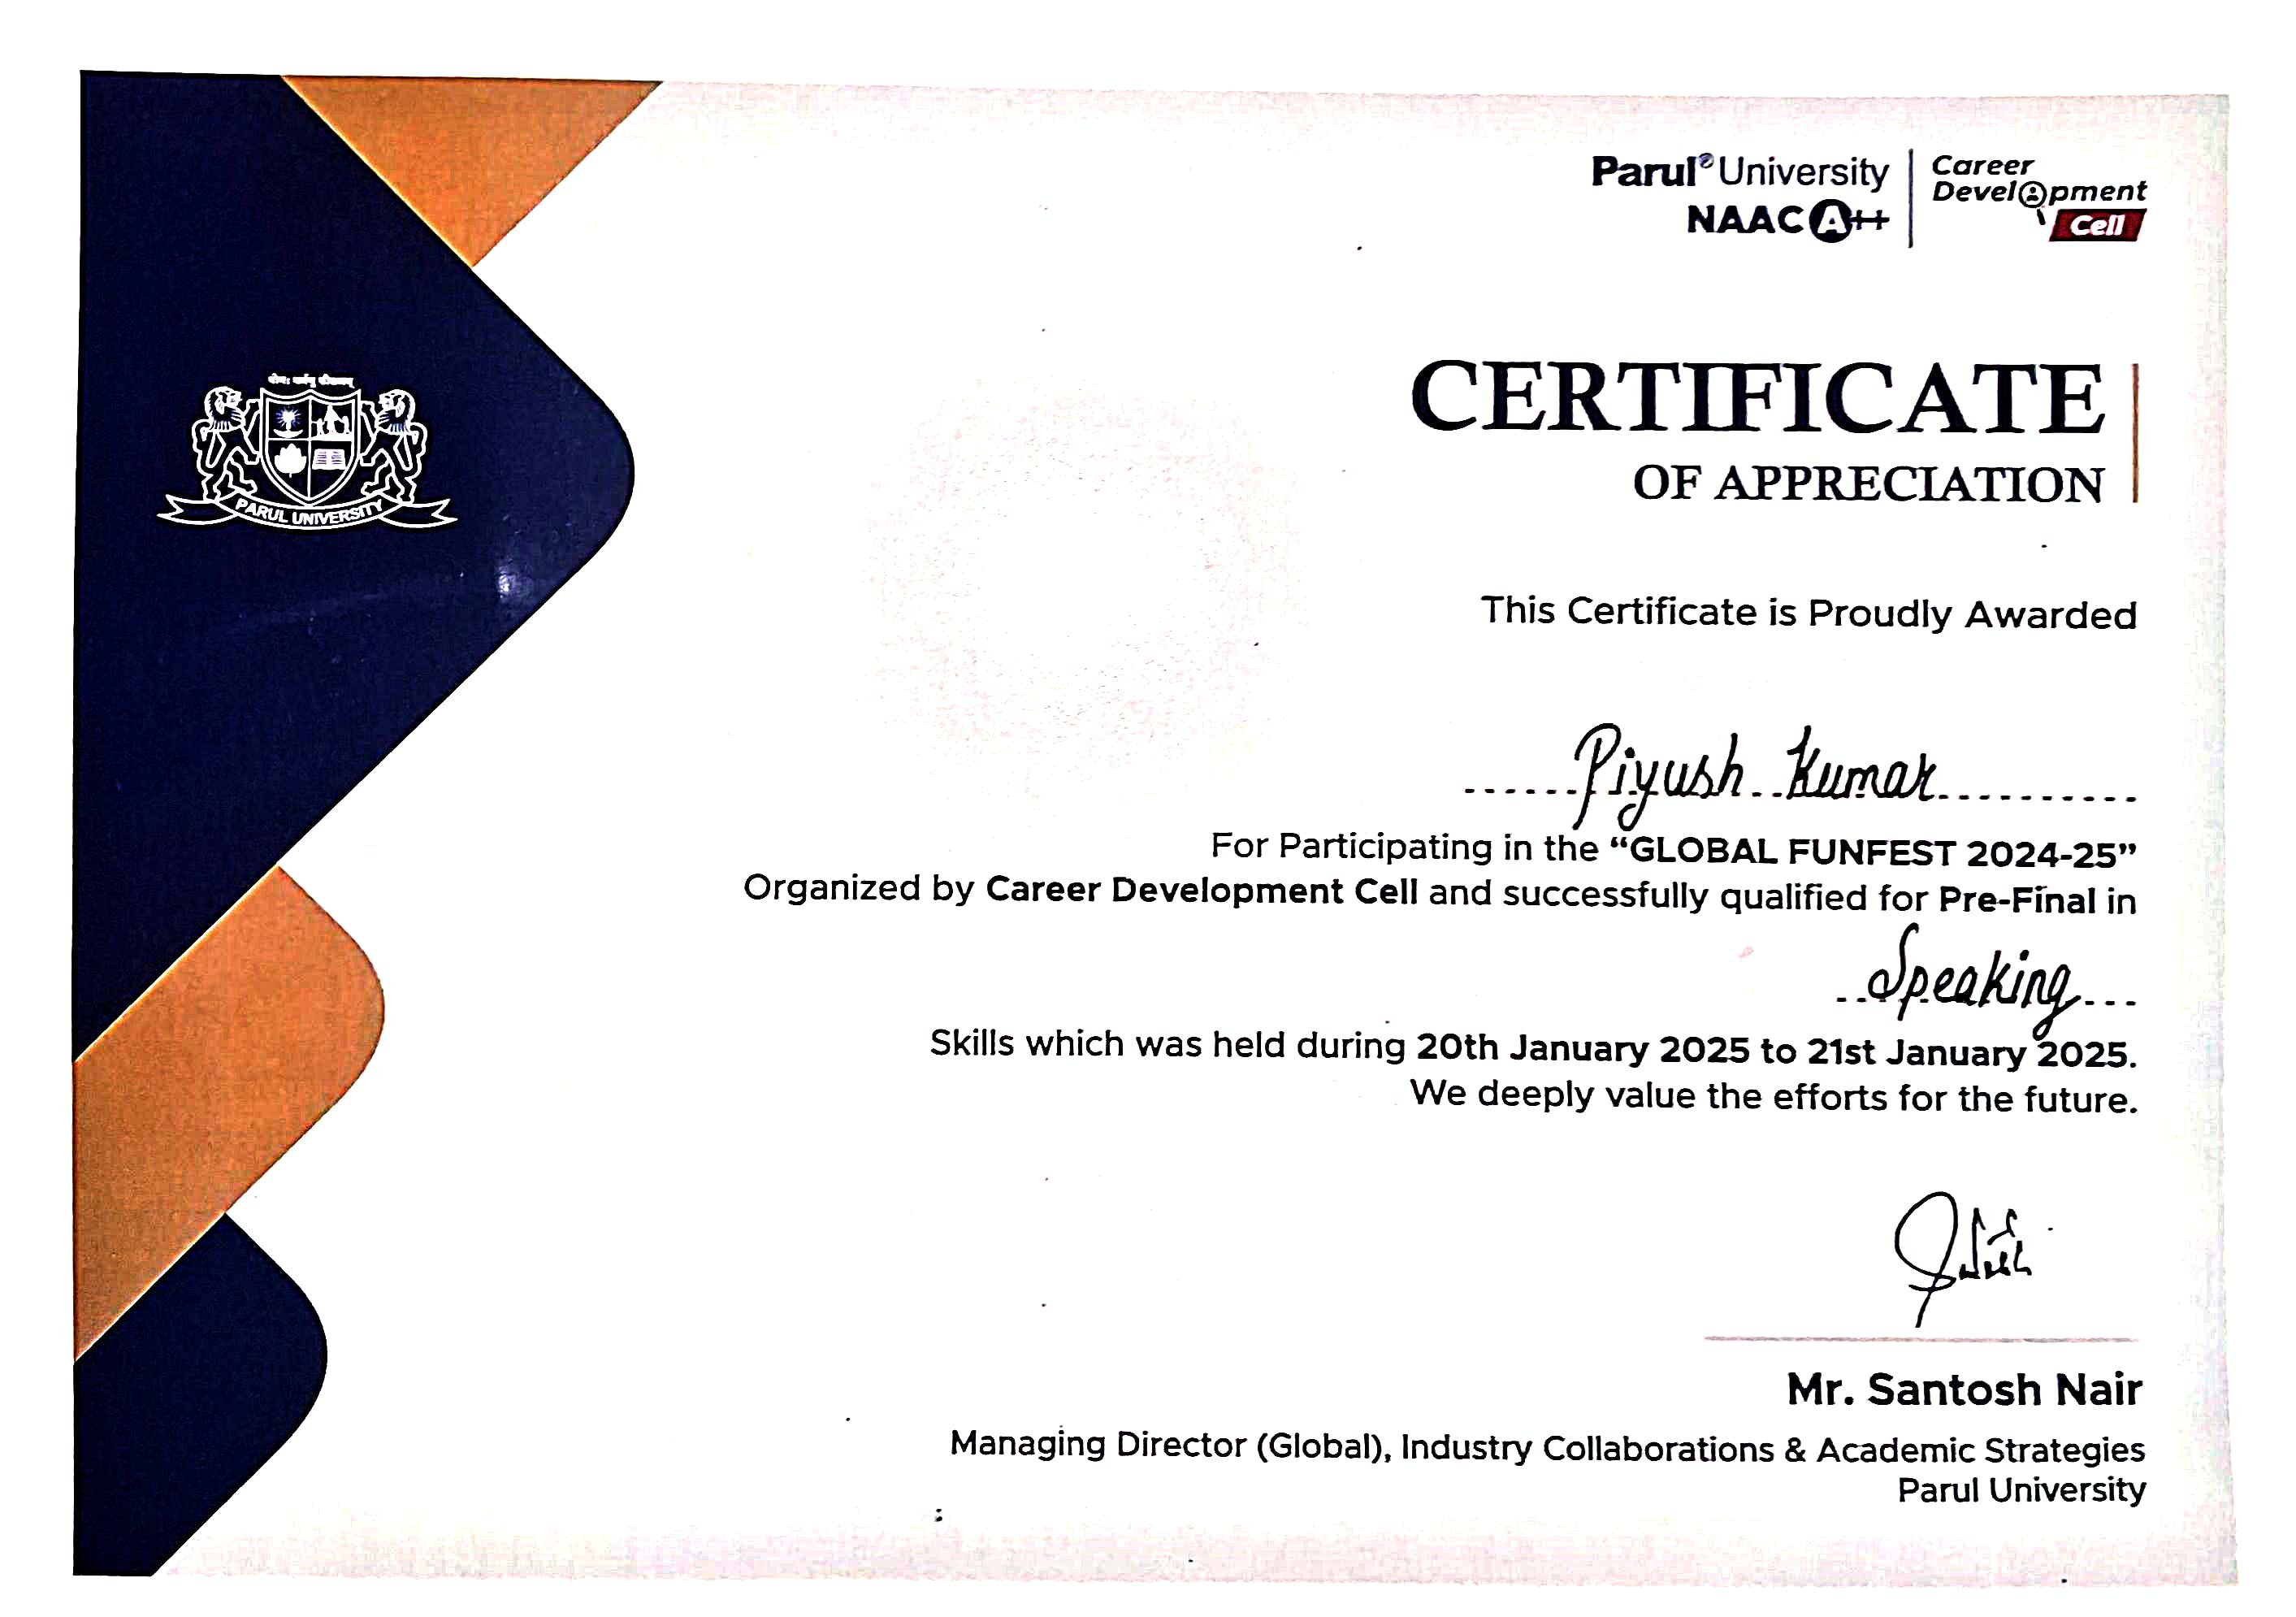 Parul University
NAAC A++
Career
Development
Cell
PARUL UNIVERSITY
CERTIFICATE
OF APPRECIATION
This Certificate is Proudly Awarded
Piyush Kumar
For Participating in the “GLOBAL FUNFEST 2024-25”
Organized by Career Development Cell and successfully qualified for Pre-Final in
Speaking
Skills which was held during 20th January 2025 to 21st January 2025.
We deeply value the efforts for the future.
Mr. Santosh Nair
Managing Director (Global), Industry Collaborations & Academic Strategies
Parul University